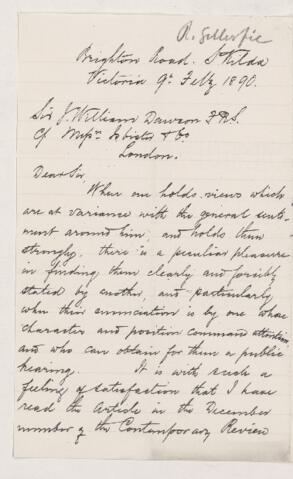 R. Gillespie
Brighton Road. St Kilda
Victoria 9th Feby 1890.
Sir J. William Dawson F.R.S.
C/ Messrs Isbister & Co
London.
Dear Sir,
When one holds views which
are at variance with the general senti-
ment around him, and holds them
strongly, there is a peculiar pleasure
in finding them clearly and forcibly
stated by another, and particularly
when their enunciation is by one whose
character and position command attention,
and who can obtain for them a public
hearing. It is with such a
feeling of satisfaction that I have
read the Article in the December
number of the Contemporary Review